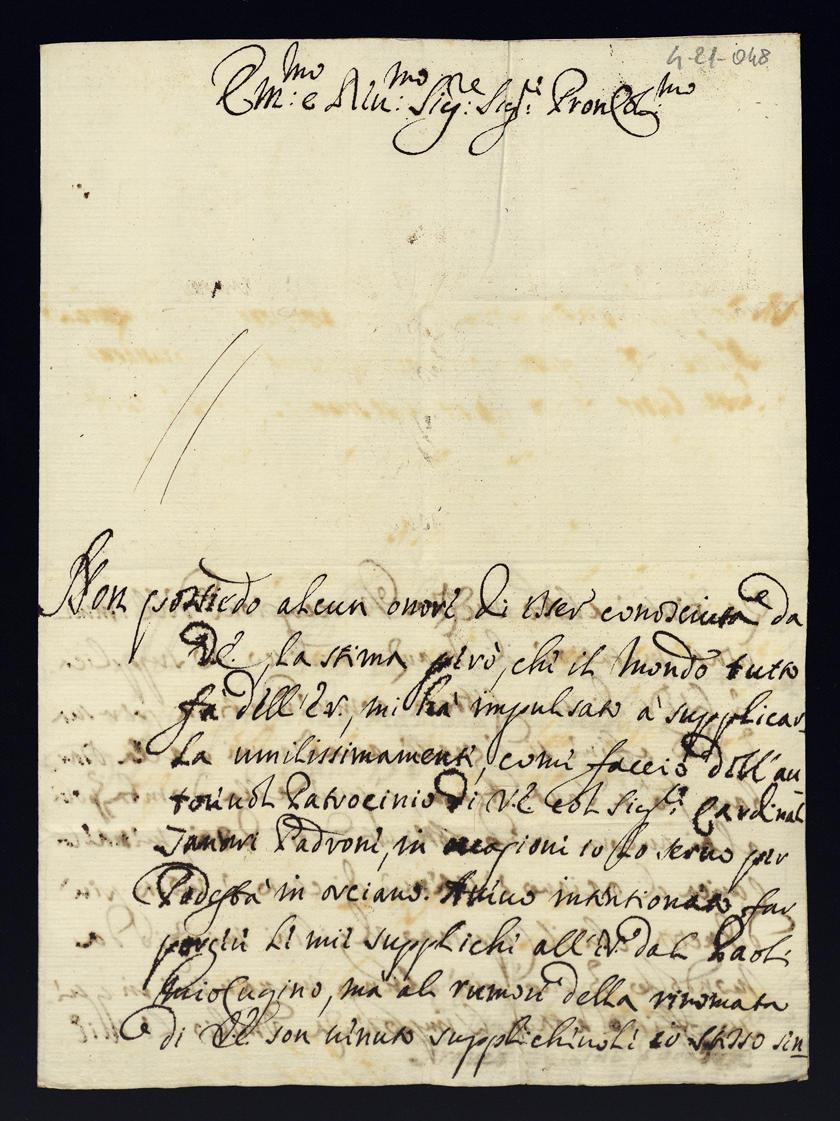 4-21-048
Rmo: e Illmo: Sigre: Sigre: Pron Colmo
Non possiedo alcun onore di esser conosciuta da
V.E., la stima però, che il mondo tutto
fa dell'E.V., mi hà impulsato à supplicar
La umilissimamente, come faccio dell'au
toreuol Patrocinio di V.E. col Sigre: Cardinal
Padrone, in ocasione io lo seruo per
Podestà in orciano. Aueuo intentionato far
porgere le mie suppliche all'E.V. dal Paoli
mio Cugino, mà al rumore della rinomata
di V.E. son uenuto supplicheuole io stesso sin